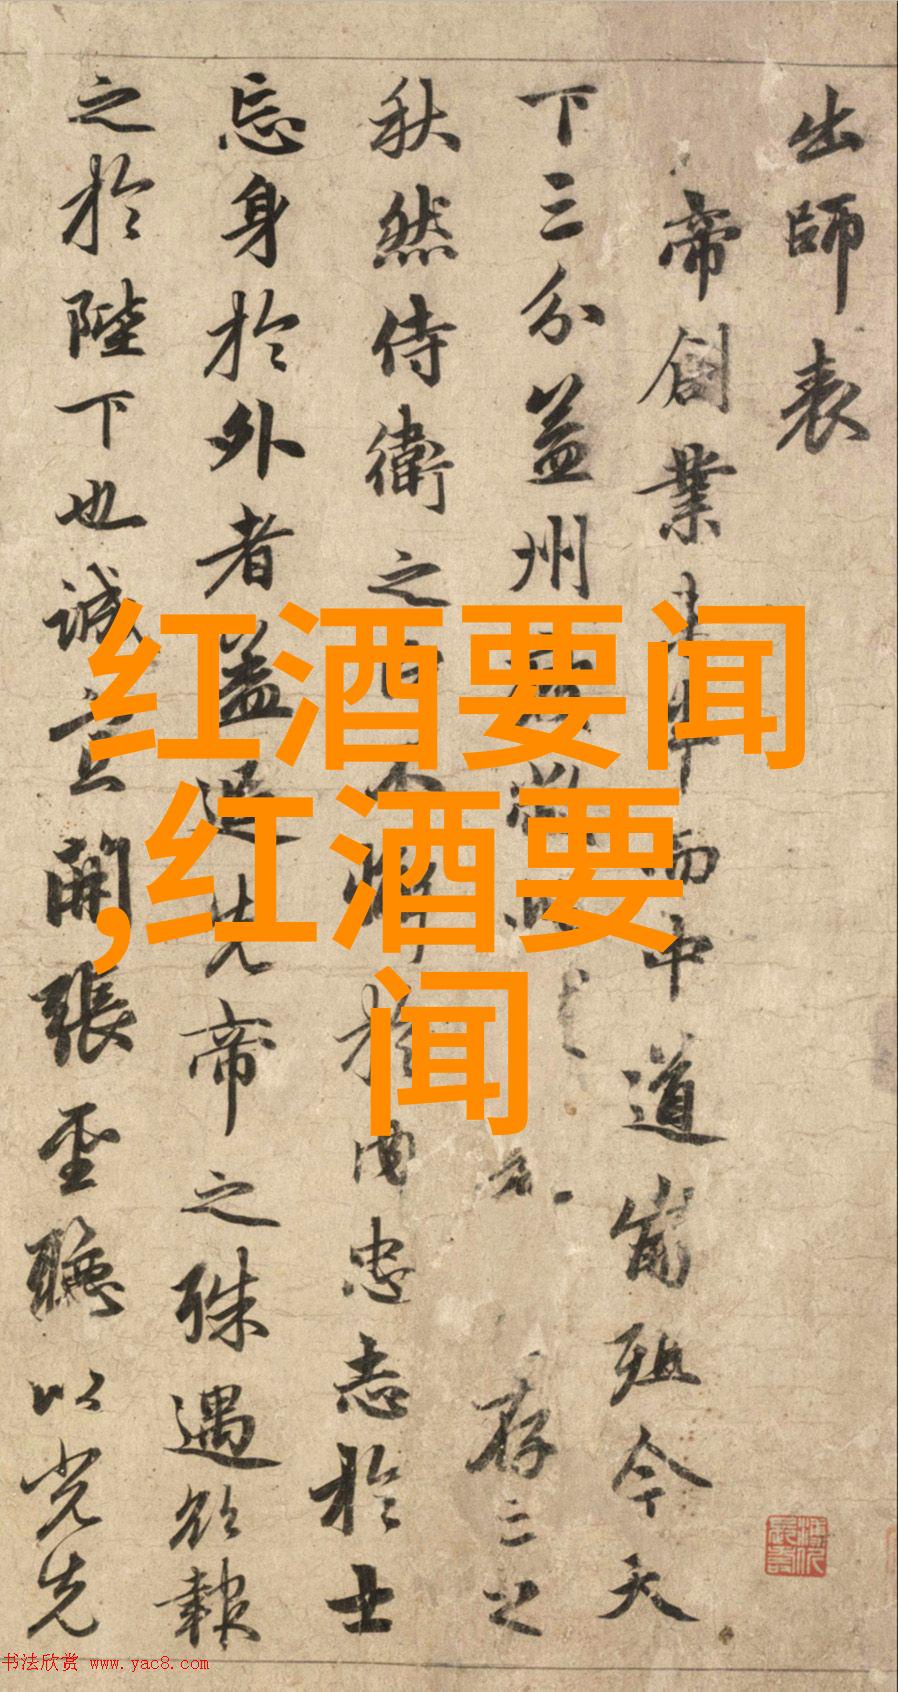 出師表
帝創業而中道崩殂今天
下三分益州存之
秋然侍衛之不於内忠志於士
忘身於外者蓋追先帝之殊遇欲報
之於陛下也誠宜開張聖聽以光先
红酒要闻
,红酒要
闻
书法欣赏 www.yac8.com